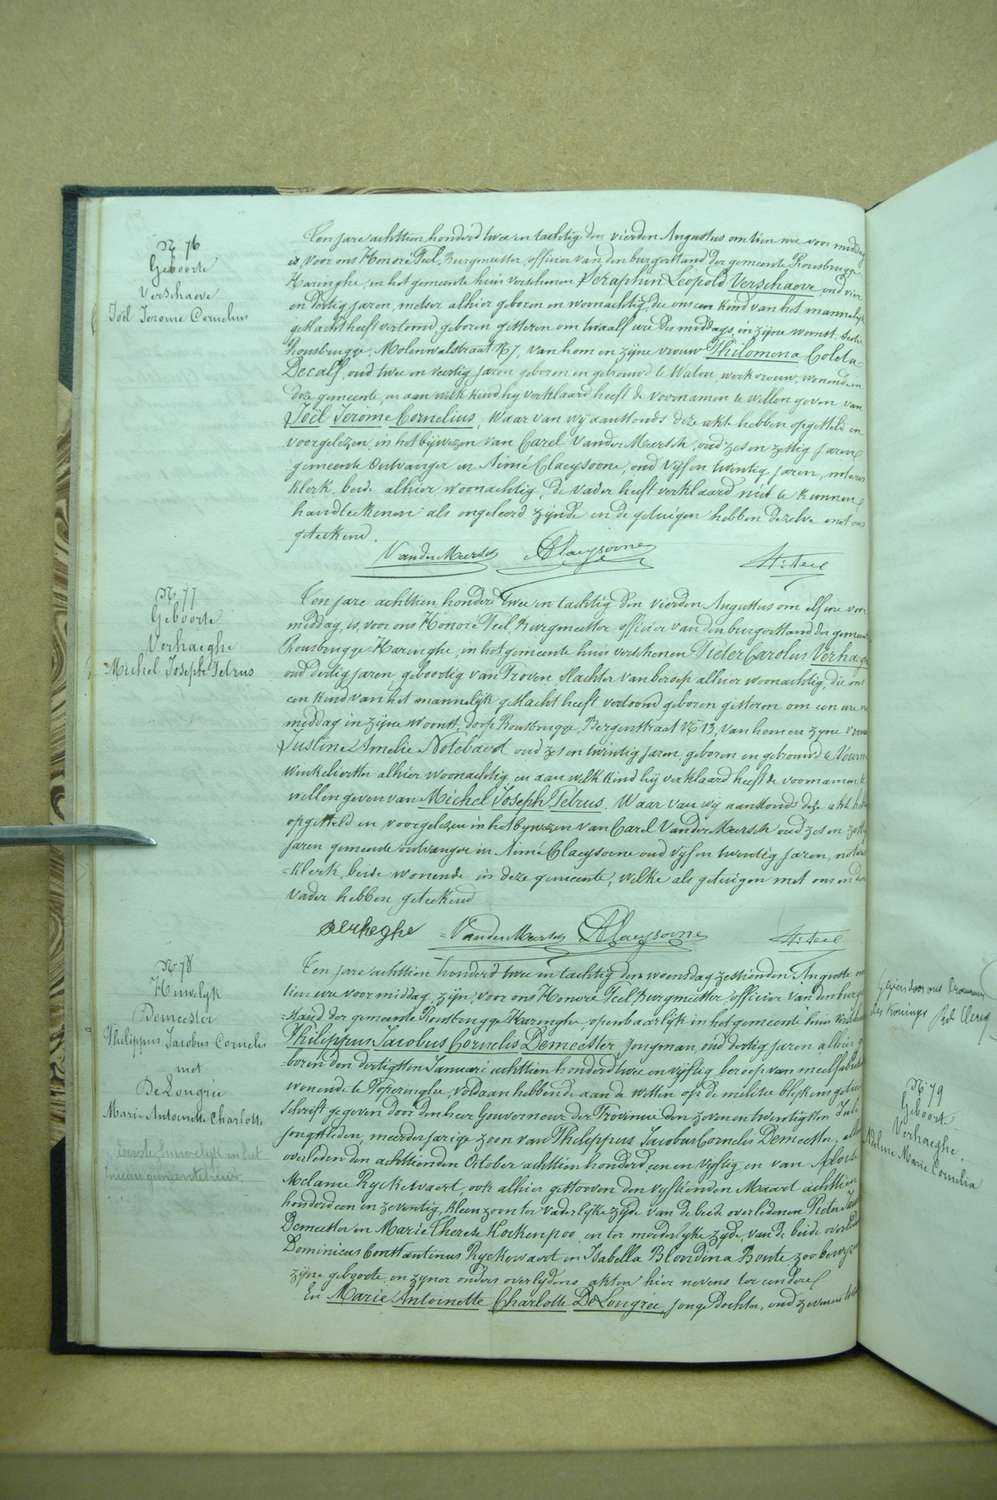 N: 76
Geboorte
Verschaeve
Joël Jerome Cornelius
Ten jare achttien honderd twee en tachtig den vierden Augustus om tien ure voor middag
is, voor ons Honoré Teel, Burgmeester, officier van den burgerstand der gemeente Rousbrugge
Haringhe, in het gemeente huis verschenen Seraphin Leopold Verschaeve, oud vier
en dertig jaren, metser alhier geboren en woonachtig, die ons een kind van het mannelijk
geslacht heeft vertoond, geboren gisteren om twaalf ure des middags, in zijne woonst, dorp
Rousbrugge, Molenwalstraat N: 7, van hem en zijne vrouw Philomena Coleta
Decalf, oud twee en veertig jaren geboren en getrouwd te Watou, werkvrouw, wonende in
deze gemeente, en aan welk kind hij verklaard heeft de voornamen te willen geven van
Joël Jerome Cornelius, Waar van wij aanstonds deze akt hebben opgesteld en
voorgelezen, in het bijwezen van Carel Vander Meersch, oud zes en zestig jaren
gemeente Ontvanger en Aimé Claeysoone, oud vijf en twintig jaren, notaris
klerk, beide alhier woonachtig, de vader heeft verklaard niet te kunnen
handteekenen als ongeleerd zijnde en de getuigen hebben dezelve met ons
geteekend.
VanderMeersch AClaeysoone H: Teel
N: 77
Geboorte
Verhaeghe
Michel Joseph Petrus
Ten jare achttien honderd twee en tachtig den vierden Augustus om elf ure voor
middag, is, voor ons Honoré Teel, Burgmeester officier van den burgerstand der gemeente
Rousbrugge Haringhe, in het gemeente huis verschenen Pieter Carolus Verhaeghe
oud dertig jaren, geboortig van Proven, slachter van beroep alhier woonachtig, die ons
een kind van het mannelijk geslacht heeft vertoond geboren gisteren om een ure
middag in zijne woonst, dorp Rousbrugge, Bergenstraat N: 13, van hem en zijne vrouw
Justine Amelie Notebaert oud zes en twintig jaren, geboren en getrouwd te Veurne
winkelierster alhier woonachtig, en aan welk kind hij verklaard heeft de voornamen te
willen geven van Michel Joseph Petrus, Waar van wij aanstonds deze akt hebben
opgesteld en voorgelezen in het bijwezen van Carel Vander Meersch oud zes en zestig
jaren gemeente ontvanger en Aimé Claeysoone oud vijf en twintig jaren, notaris
klerk, beide wonende in deze gemeente, welke als getuigen met ons en den
vader hebben geteekend
Verheghe VanderMeersch AClaeysoone H: Teel
N: 78
Huwelijk
Demeester
Philippus Jacobus Cornelis
met
De Longrée
Marie Antoinette Charlotte
Ten jare achttien honderd twee en tachtig den woensdag zestienden Augustus om
tien ure voor middag, zijn, voor ons Honoré Teel, Burgmeester, officier van den burger
stand der gemeente Rousbrugge Haringhe, openbaarlijk in het gemeente huis verschenen
Philippus Jacobus Cornelis Demeester, jongman, oud dertig jaren alhier ge
boren den dertigsten Januari achttien honderd twee en vijftig, beroep van
wonende te Poperinghe, voldaan hebbende aan de wetten op de militie blijkens getuig
schrift gegeven door den heer Gouverneur der Provincie den zeven en twintigsten Juli
jongstleden, meerderjarige zoon van Philippus Jacobus Cornelis Demeester, alhier
overleden den achttienden October achttien honderd een en vijftig en van
Melanie Ryckewaert, ook alhier gestorven den vijftienden Maart achttien
honderd een en zeventig, kleinzoon ter vaderlijke zijde van de beide overledenen Pieter
Demeester en Marie Therese Kockenpoo, en ter moederlijke zijde, van de beide overleden
Dominicus Constantinus Ryckewaert en Isabella Blondina Bonte zoo bewezen
zijne geboorte en zijner ouders overlijdens akten hier nevens ten eindere
En Marie Antoinette Charlotte De Longrée, jonge Dochter, oud
N: 79
Geboorte
Verhaeghe
Marie Cornelia